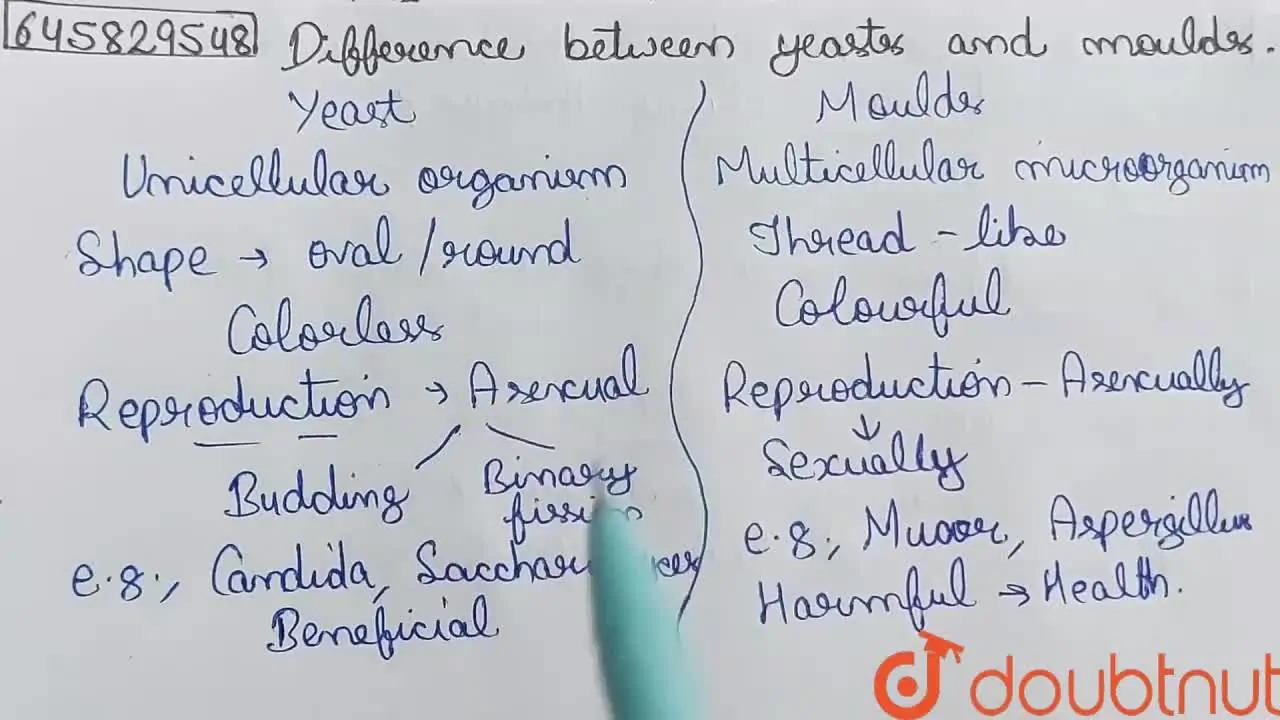 645829548 Difference between yeasts and moulds.
Yeast
Unicellular organism
Shape → oval / round
Colorless
Reproduction → Asexual
Budding
Binary
fission
e.g., Candida,
Beneficial
Moulds
Multicellular microorganism
Thread - like
Colourful
Reproduction - Asexually
↓
Sexually
e.g., Mucor, Aspergillus
Harmful → Health.
doubtnut